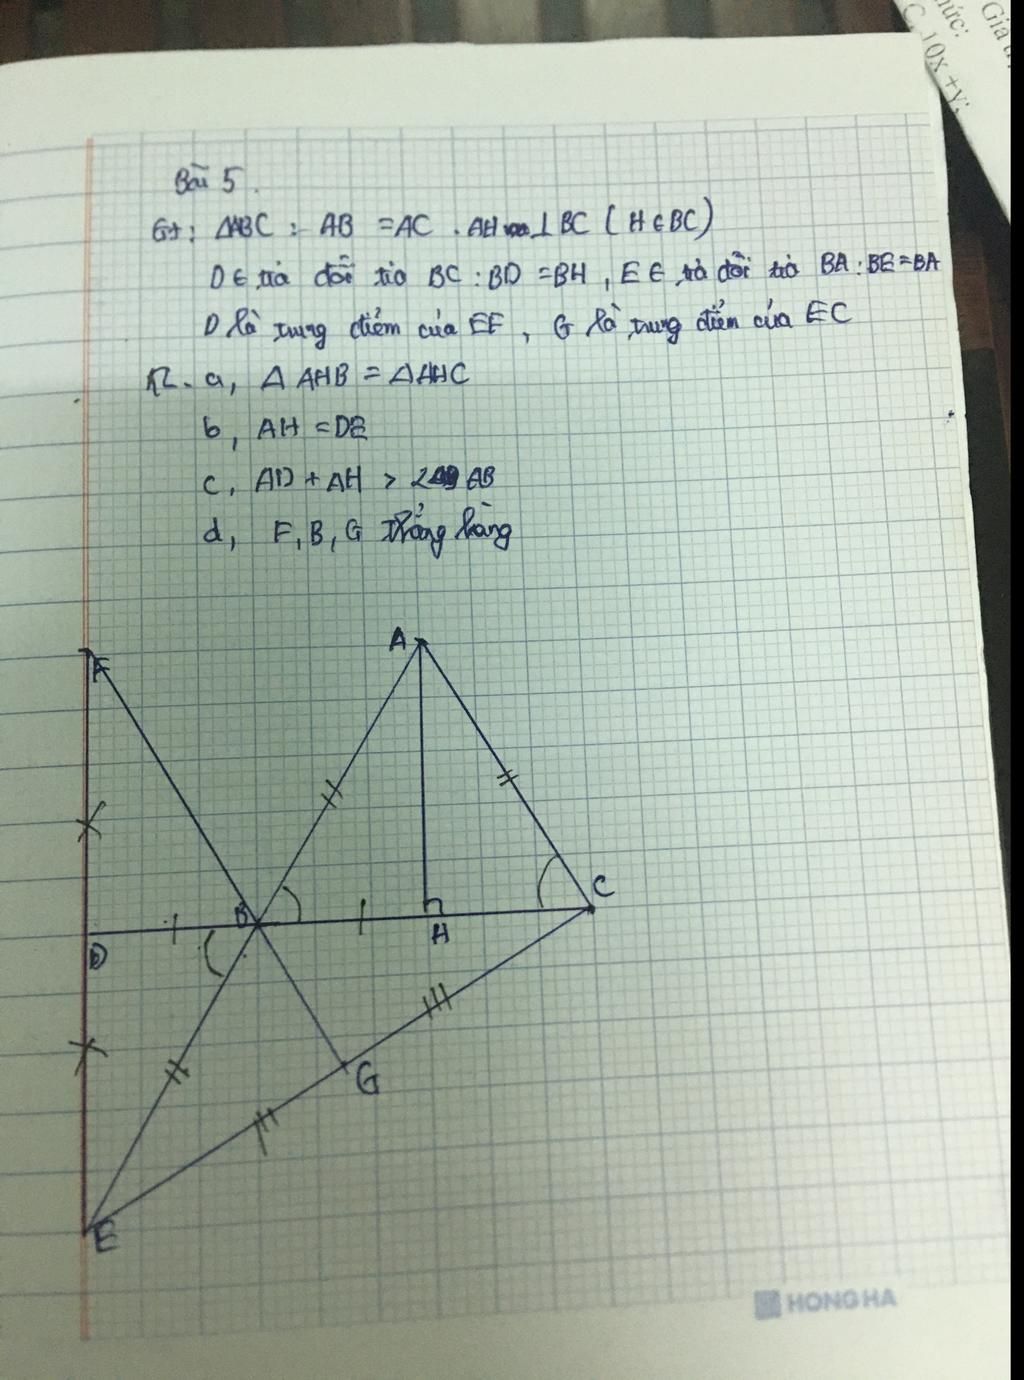 Giá tr
thức:
C. 10x + y;
Bài 5.
Gt: ΔABC : AB = AC . AH ⊥ BC ( H ∈ BC)
D ∈ tia đối tia BC : BD = BH , E ∈ tia đối tia BA : BE = BA
D là trung điểm của EF , G là trung điểm của EC
KL. a, Δ AHB = Δ AHC
b, AH = DE
c, AD + AH > 2 AB
d, F, B, G thẳng hàng
A
F
C
B
H
D
G
E
HONG HA